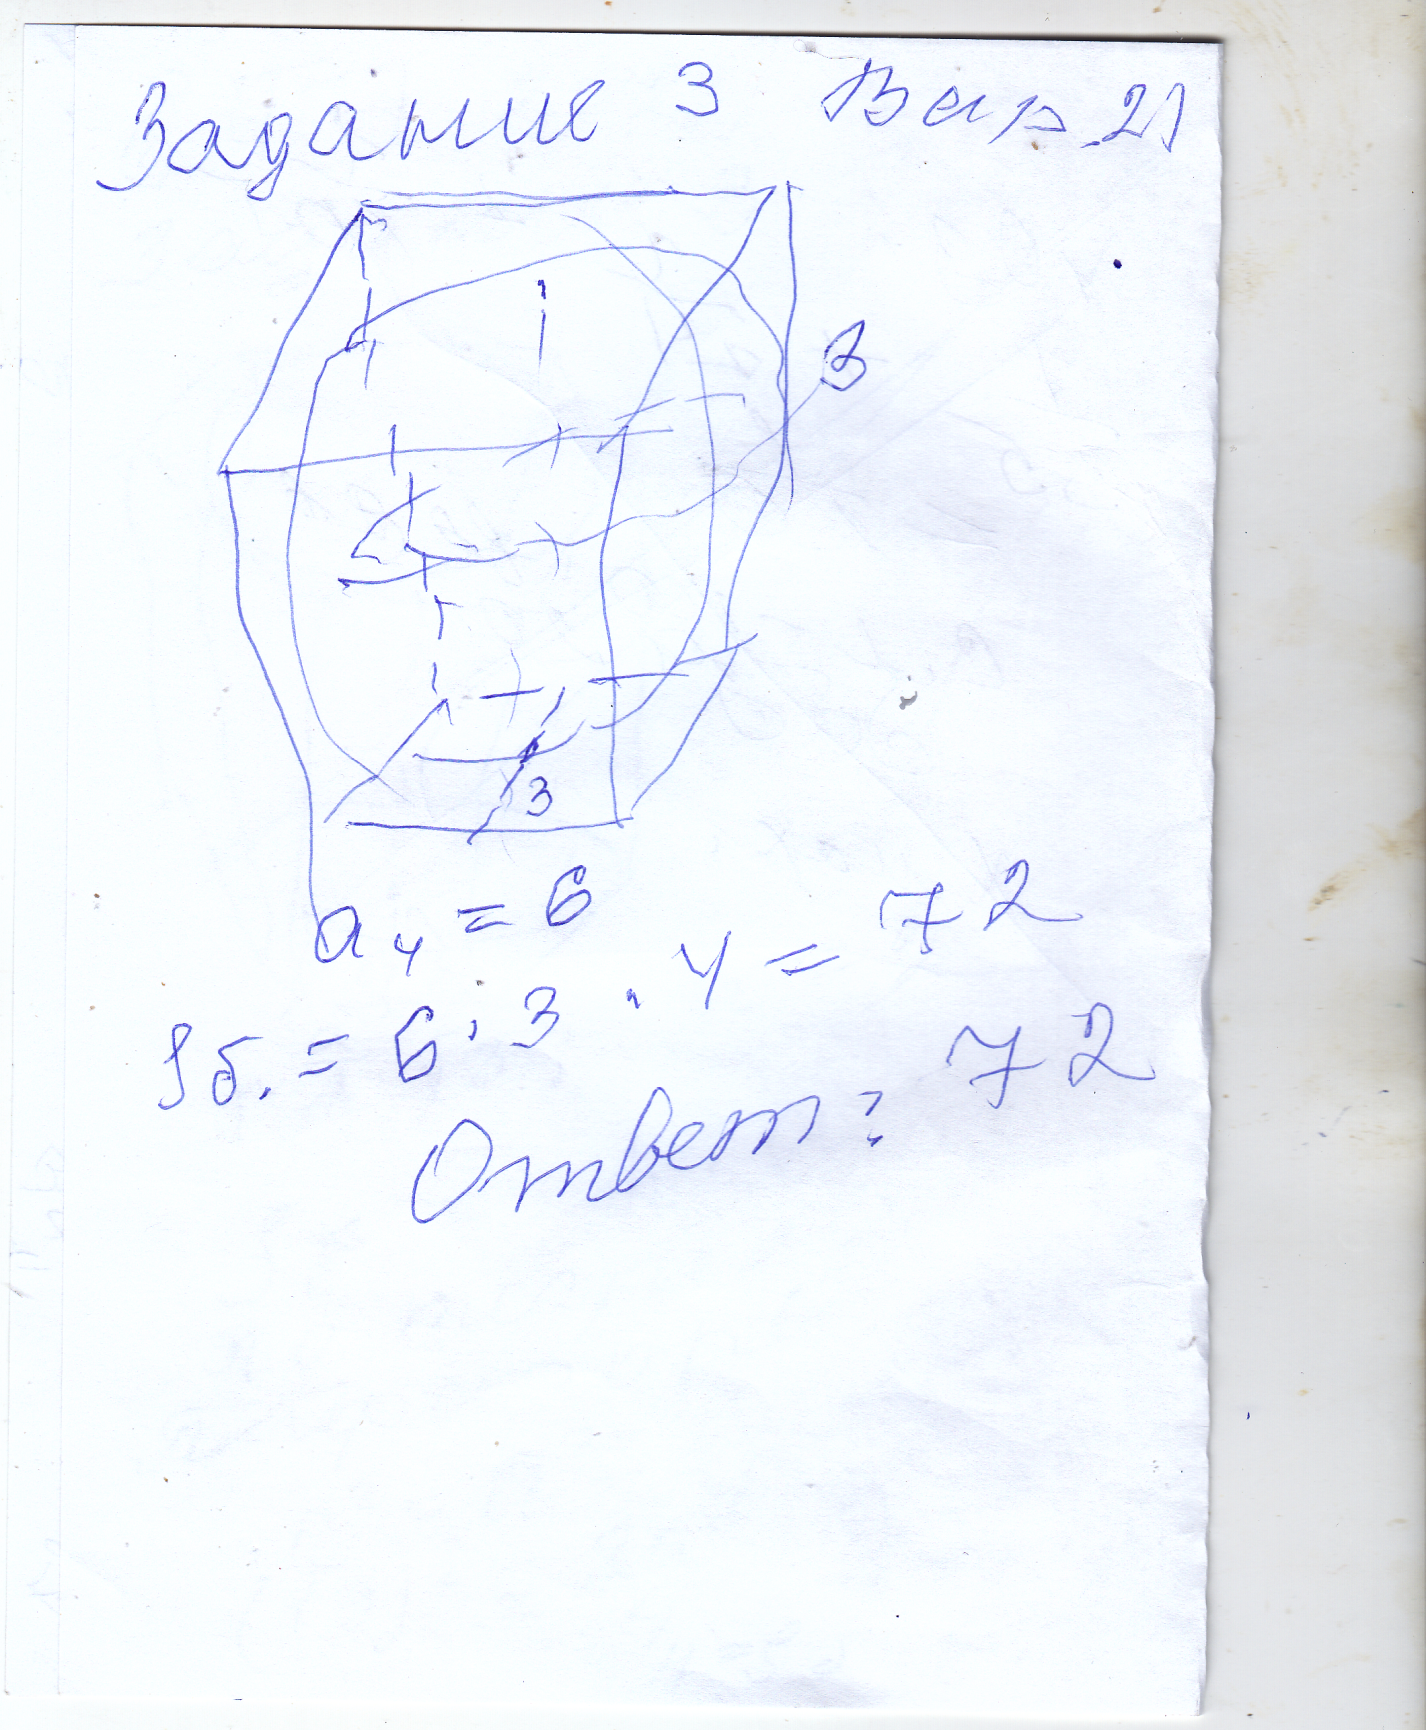 Задание 3 Вар. 21
3
3
a₄ = 6
Sб. = 6 · 3 · 4 = 72
Ответ: 72